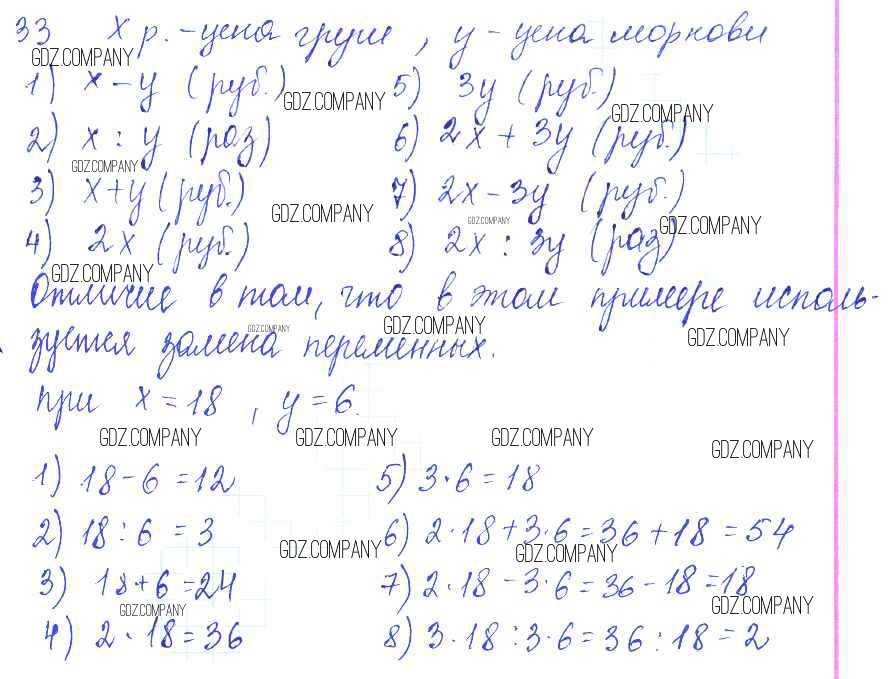 33 х р. - цена груш, у - цена моркови
GDZ.COMPANY
1) х - у (руб.) GDZ.COMPANY 5) 3у (руб.)
GDZ.COMPANY
2) х : у (раз) 6) 2х + 3у (руб.)
GDZ.COMPANY
3) х + у (руб.) 7) 2х - 3у (руб.)
GDZ.COMPANY GDZ.COMPANY GDZ.COMPANY
4) 2х (руб.) 8) 2х : 3у (раз)
GDZ.COMPANY
Отличие в том, что в этом примере исполь-
GDZ.COMPANY GDZ.COMPANY GDZ.COMPANY
зуется замена переменных.
при х = 18, у = 6.
GDZ.COMPANY GDZ.COMPANY GDZ.COMPANY GDZ.COMPANY
1) 18 - 6 = 12 5) 3 · 6 = 18
2) 18 : 6 = 3 6) 2 · 18 + 3 · 6 = 36 + 18 = 54
GDZ.COMPANY GDZ.COMPANY
3) 18 + 6 = 24 7) 2 · 18 - 3 · 6 = 36 - 18 = 18
GDZ.COMPANY GDZ.COMPANY
4) 2 · 18 = 36 8) 3 · 18 : 3 · 6 = 36 : 18 = 2